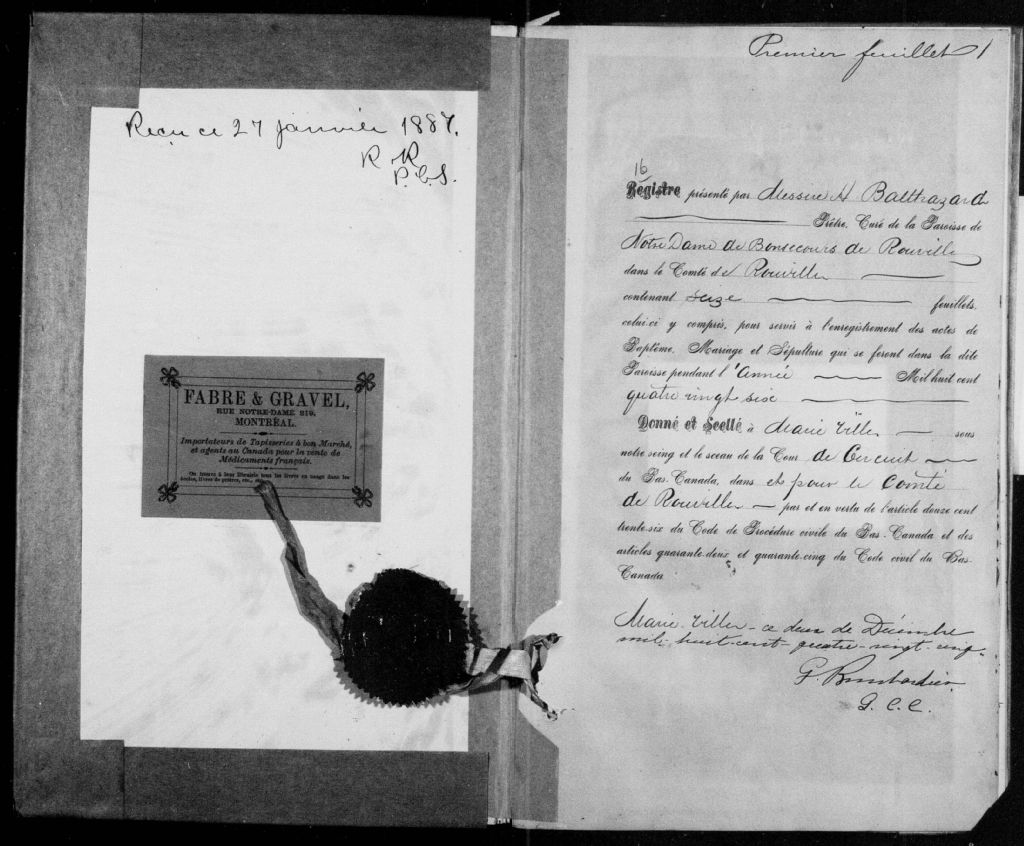 Reçu ce 27 janvier 1887.
R R
P.C.S.
FABRE & GRAVEL,
RUE NOTRE-DAME 219,
MONTRÉAL.
Importateurs de Tapisseries à bon Marché,
et agents au Canada pour la vente de
Médicaments français.
On trouve à leur librairie tous les livres en usage dans les
écoles, livres de prières, etc., etc.
Premier feuillet 1
16
Registre présenté par Messire H Balthazard
Prêtre, Curé de la Paroisse de
Notre Dame de Bonsecours de Rouville
dans le Comté de Rouville
contenant seize feuillets,
celui-ci y compris, pour servir à l'enregistrement des actes de
Baptême, Mariage et Sépulture qui se feront dans la dite
Paroisse pendant l'Année Mil huit cent
quatre vingt six
Donné et Scellé à Marieville sous
notre seing et le sceau de la Cour de Circuit
du Bas-Canada, dans et pour le Comté
de Rouville par et en vertu de l'article douze cent
trente-six du Code de Procédure civile du Bas-Canada et des
articles quarante-deux et quarante-cinq du Code civil du Bas-
Canada
Marieville - ce deux de Décembre
mil-huit-cent-quatre-vingt-cinq.
G. C. C.